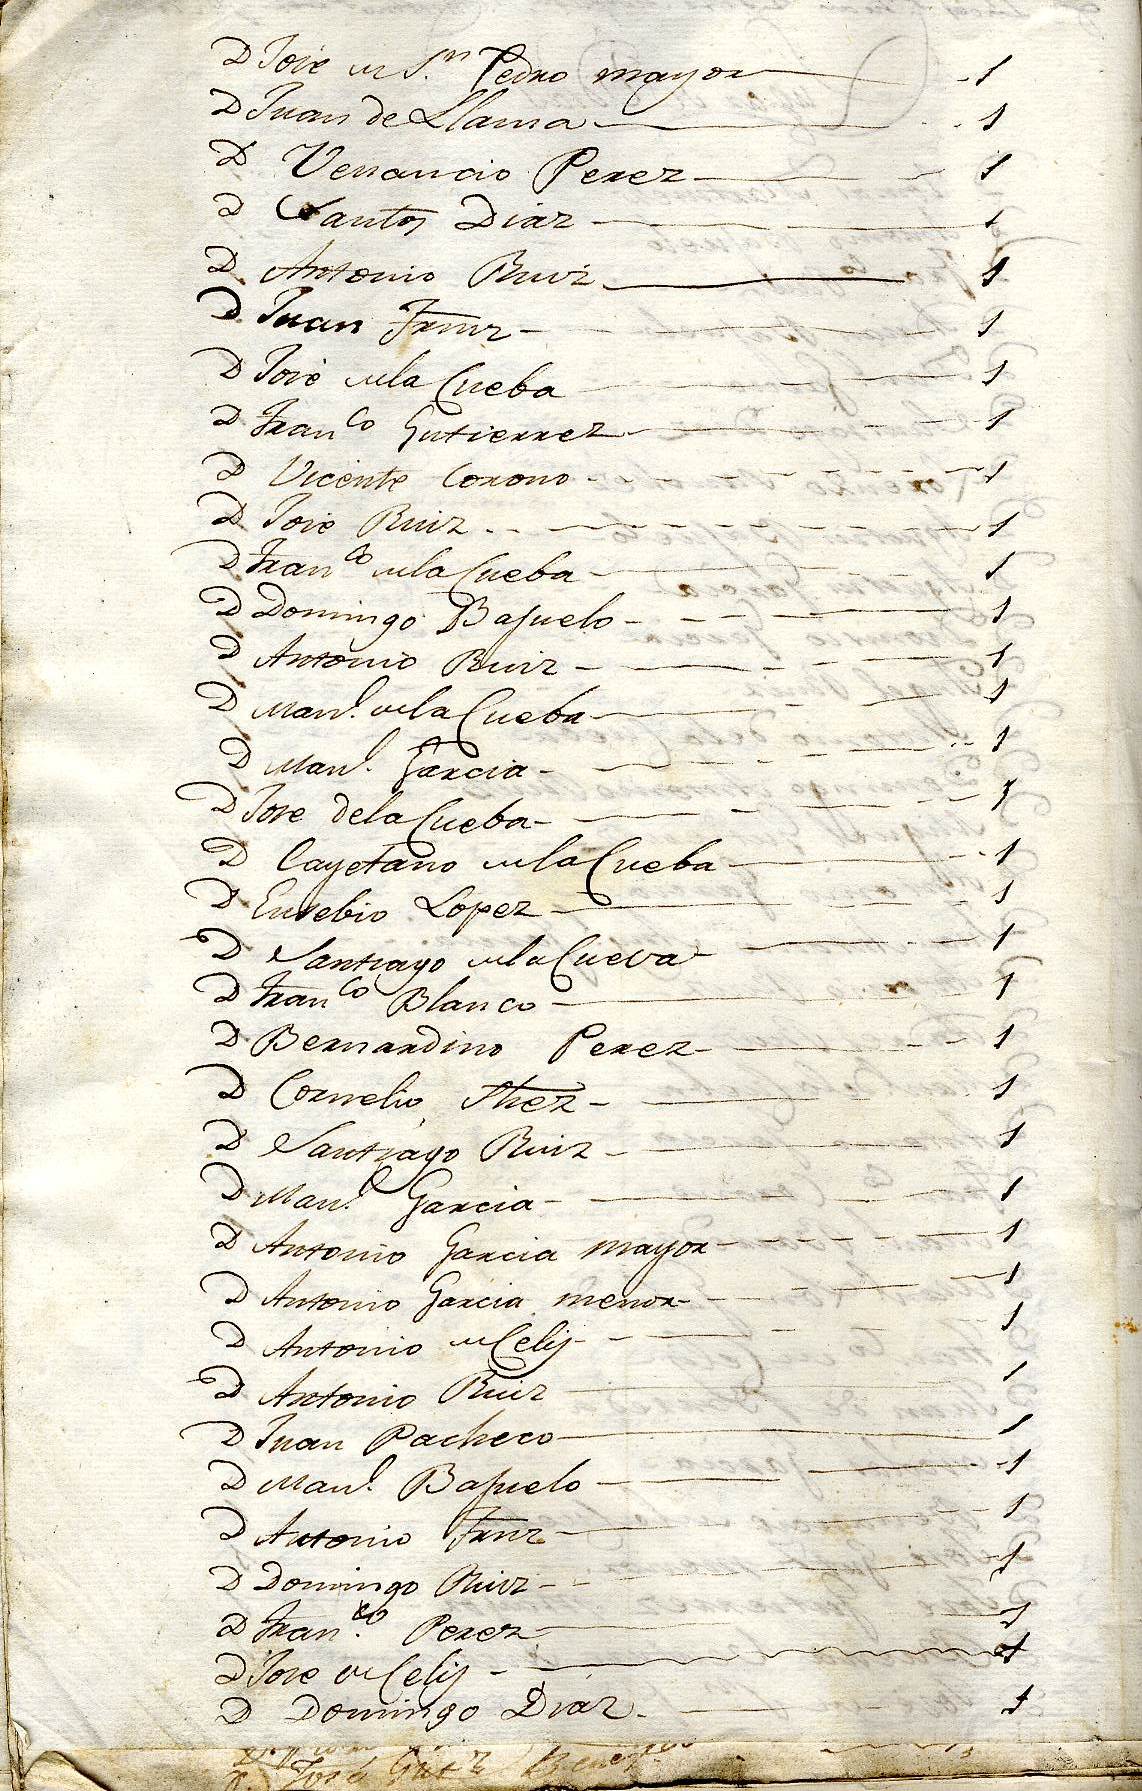 D Jose de S.n Pedro mayor 1
D Juan de Llama 1
D Venancio Perez 1
D Santos Diaz 1
D Antonio Ruiz 1
D Juan Frnz 1
D Jose dela Cueba 1
D Franco Gutierrez 1
D Vicente Corono 1
D Jose Ruiz 1
D Franco dela Cueba 1
D Domingo Bajuelo 1
D Antonio Ruiz 1
D Manl. dela Cueba 1
D Manl. Garcia 1
D Jose dela Cueba 1
D Cayetano dela Cueba 1
D Eusebio Lopez 1
D Santiago dela Cueva 1
D Franco Blanco 1
D Bernardino Perez 1
D Cornelio Shez 1
D Santiago Ruiz 1
D Manl. Garcia 1
D Antonio Garcia mayor 1
D Antonio Garcia menor 1
D Antonio de Celis 1
D Antonio Ruiz 1
D Juan Pacheco 1
D Manl. Bajuelo 1
D Antonio Frnz 1
D Domingo Ruiz 1
D Franco. Perez 1
D Jose de Celis 1
D Domingo Diaz 1
D. José